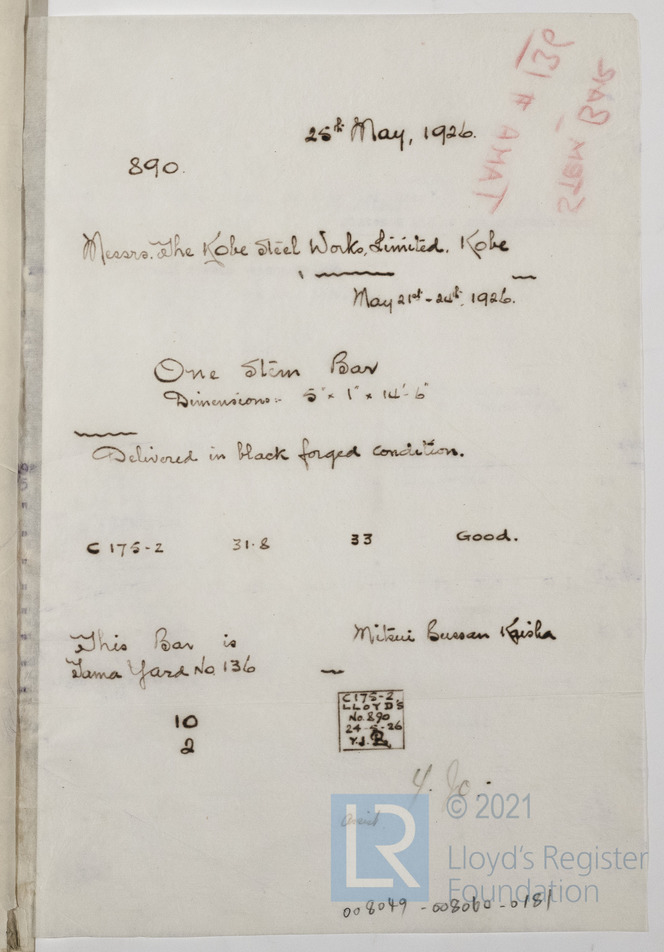 TAMA # 136
STEM - BAR
25th May, 1926.
890.
Messrs. The Kobe Steel Works, Limited. Kobe
May 21st - 24th, 1926.
One Stem Bar
Dimensions:- 5" x 1" x 14'-6"
Delivered in black forged condition.
C 175-2 31.8 33 Good.
This Bar is
Tama Yard No. 136
Mitsui Bussan Kaisha
10
2
C175-2
LLOYD'S
No. 890
24-5-26
Y.J.
Y. Jo.
© 2021
LR
Lloyd's Register
Foundation
008049 - 008060 - 0181